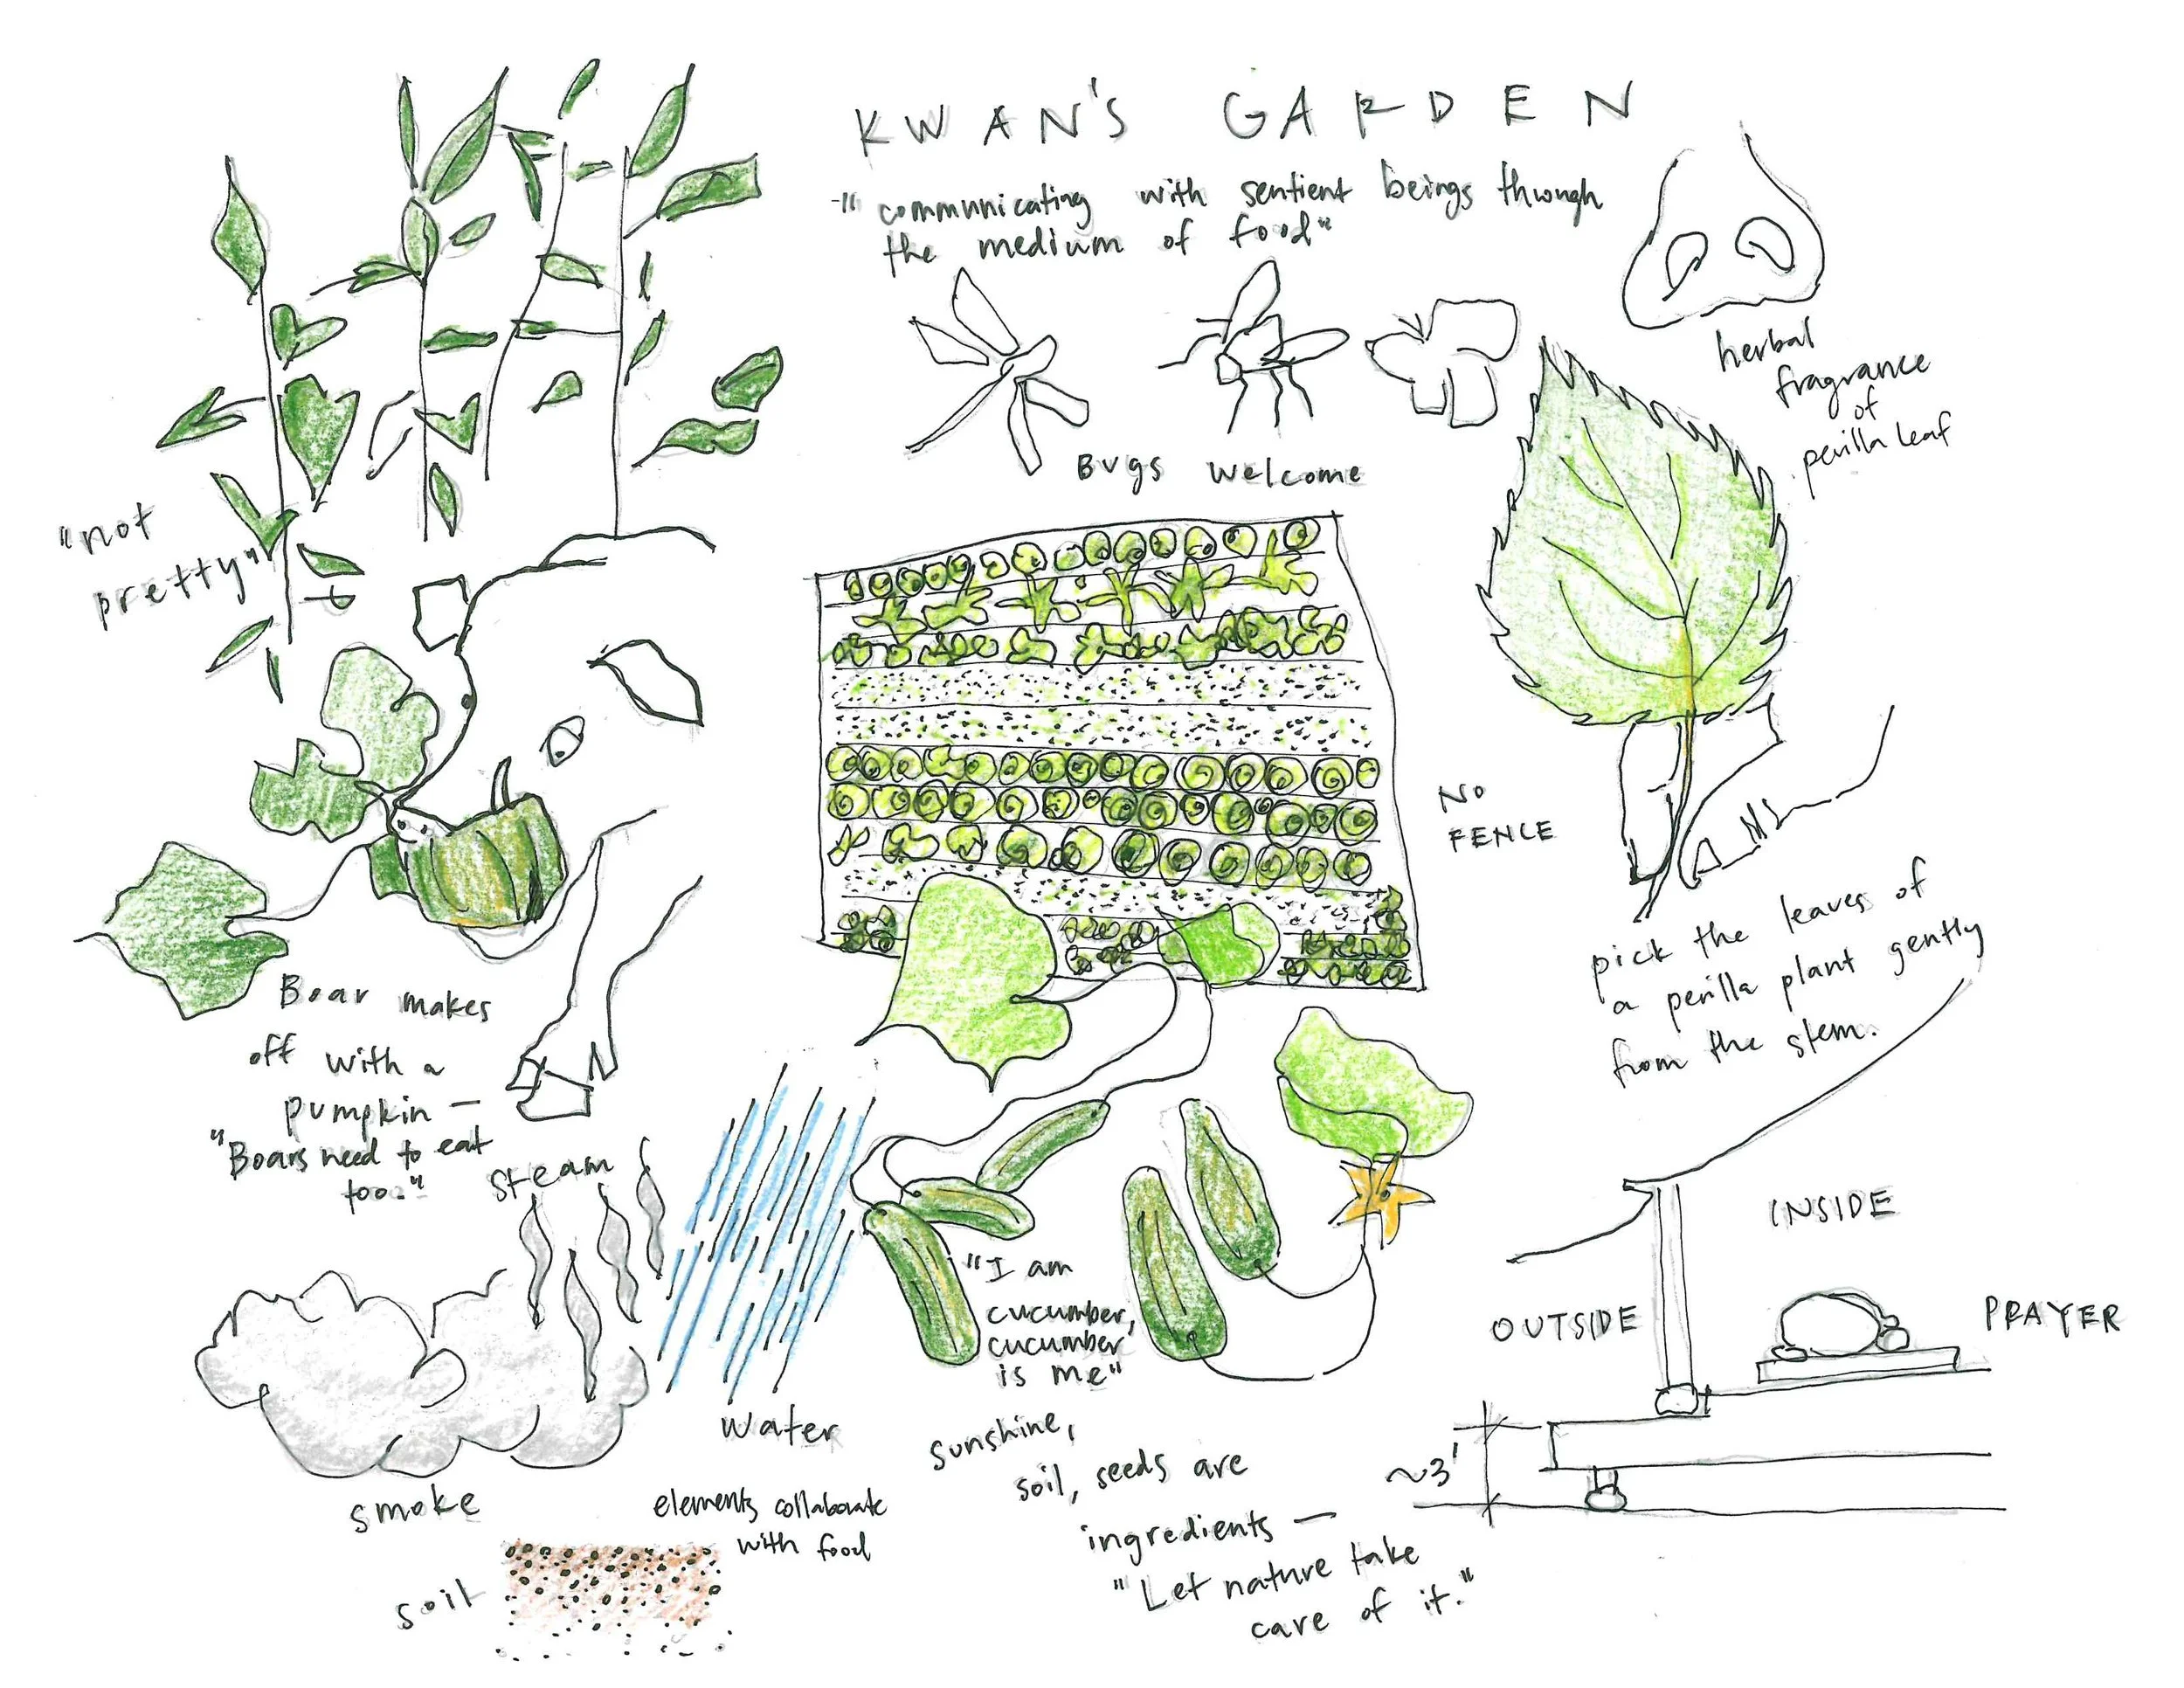 KWAN'S GARDEN
-"communicating with sentient beings through
the medium of food"
herbal
fragrance
of
perilla leaf
Bugs welcome
"not
pretty"
NO
FENCE
pick the leaves of
a perilla plant gently
from the stem.
Boar makes
off with a
pumpkin —
"Boars need to eat
too."
steam
INSIDE
OUTSIDE
PRAYER
"I am
cucumber,
cucumber
is me"
water
smoke
elements collaborate
with food
soil
sunshine,
soil, seeds are
ingredients —
"Let nature take
care of it."
~3'